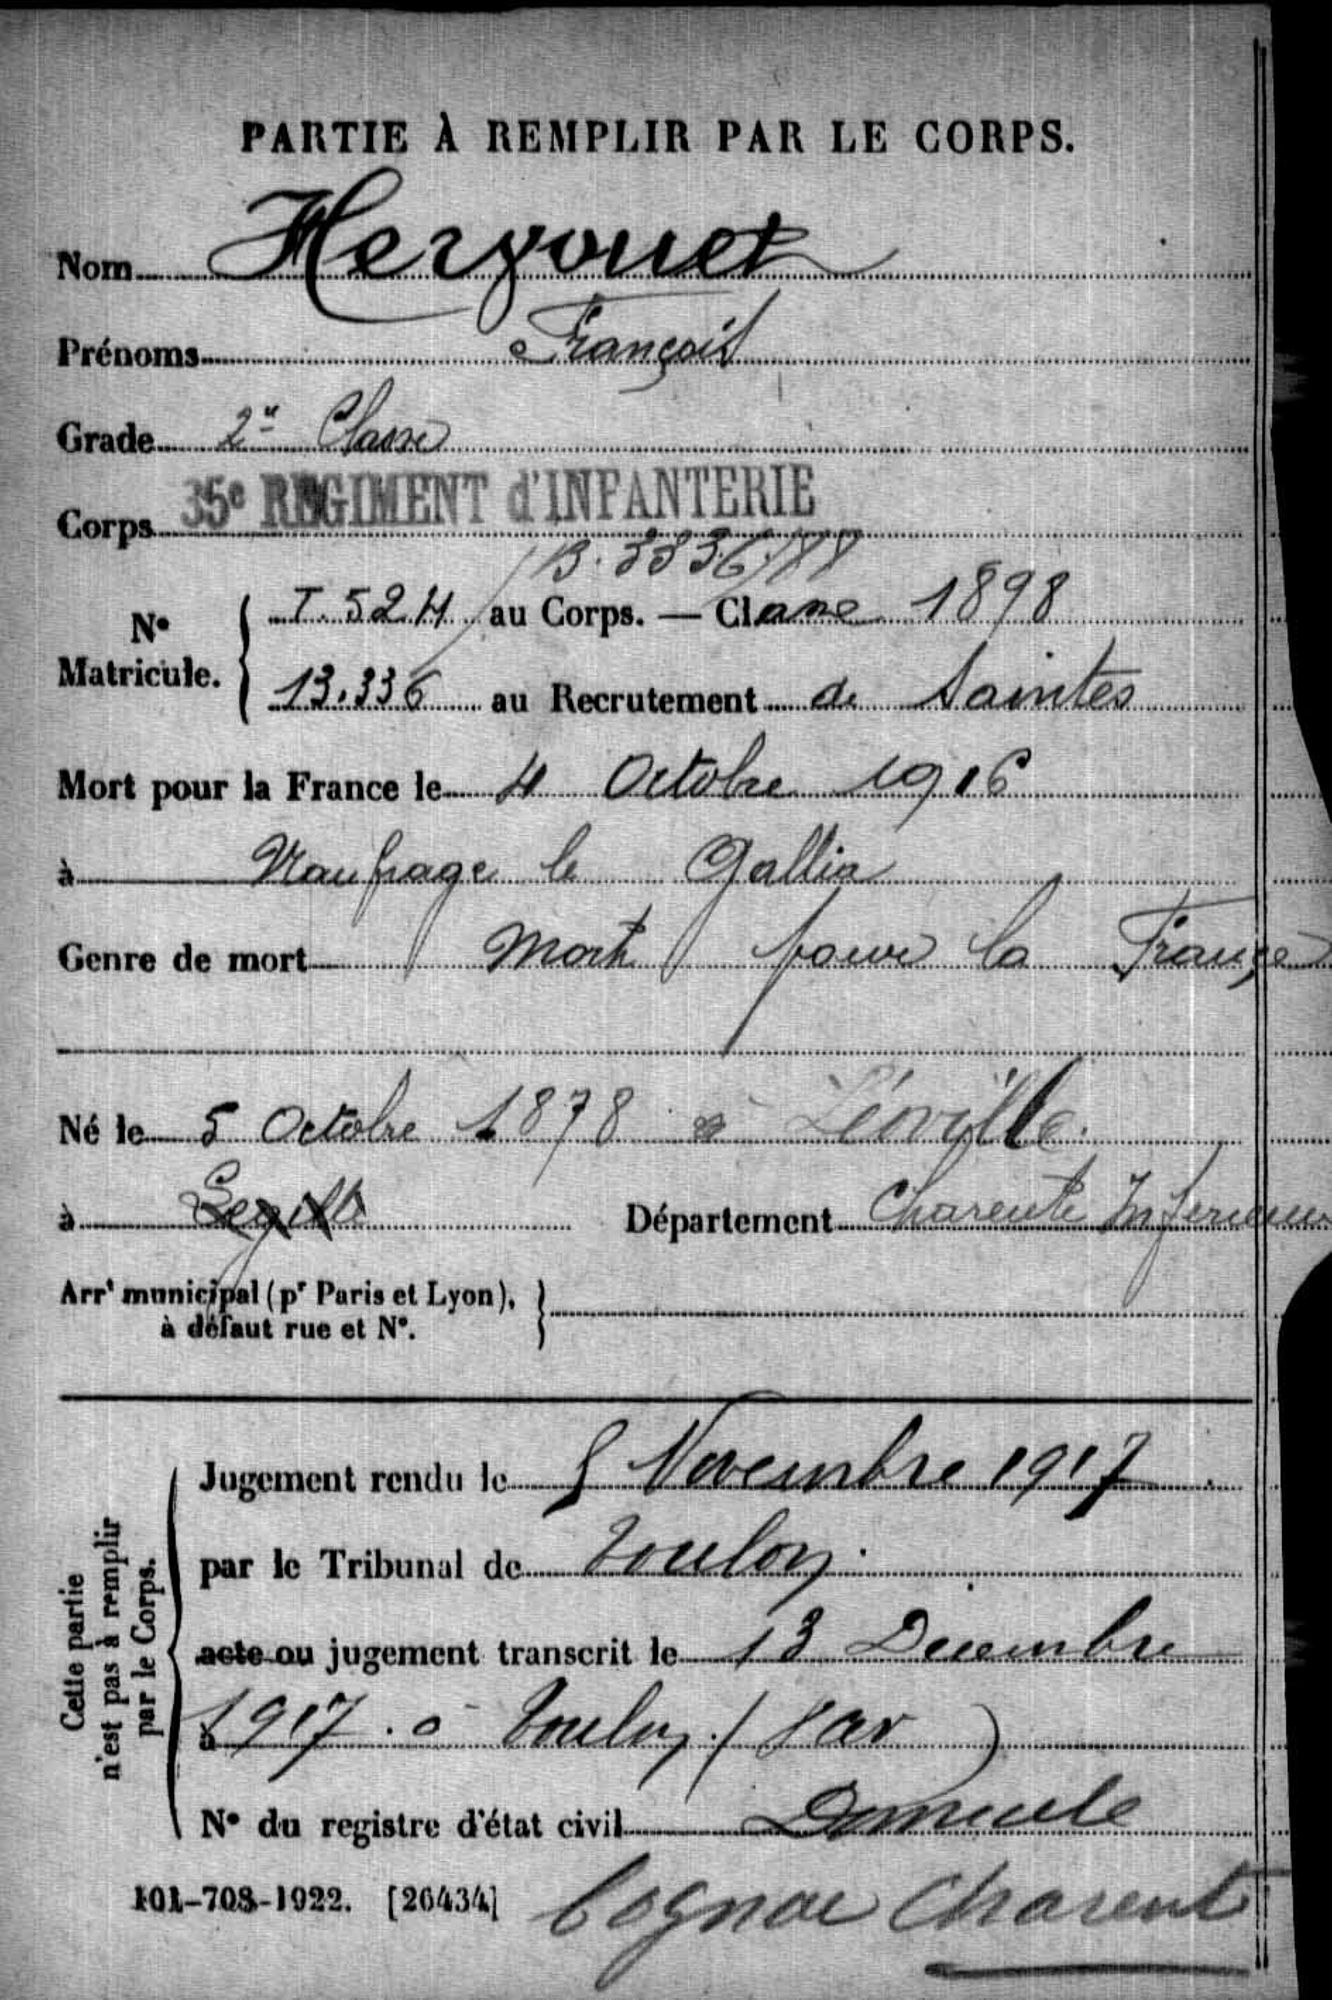 PARTIE À REMPLIR PAR LE CORPS.
Nom Hergouet
Prénoms François
Grade 2e Classe
Corps 35e REGIMENT d'INFANTERIE
B. 3336/88
N° Matricule. T. 524 au Corps. — Classe 1898
13.336 au Recrutement de Saintes
Mort pour la France le 4 Octobre 1916
à Naufrage le Gallia
Genre de mort Mort pour la France
Né le 5 Octobre 1878 à Léoville.
à Département Charente Inférieure
Arrt municipal (pr Paris et Lyon), à défaut rue et N°.
Cette partie n'est pas à remplir par le Corps.
Jugement rendu le 5 Novembre 1917
par le Tribunal de Toulon.
acte ou jugement transcrit le 13 Décembre
à 1917. à Toulon. (Var)
N° du registre d'état civil Domicile
101-708-1922. [26434] Cognac Charente